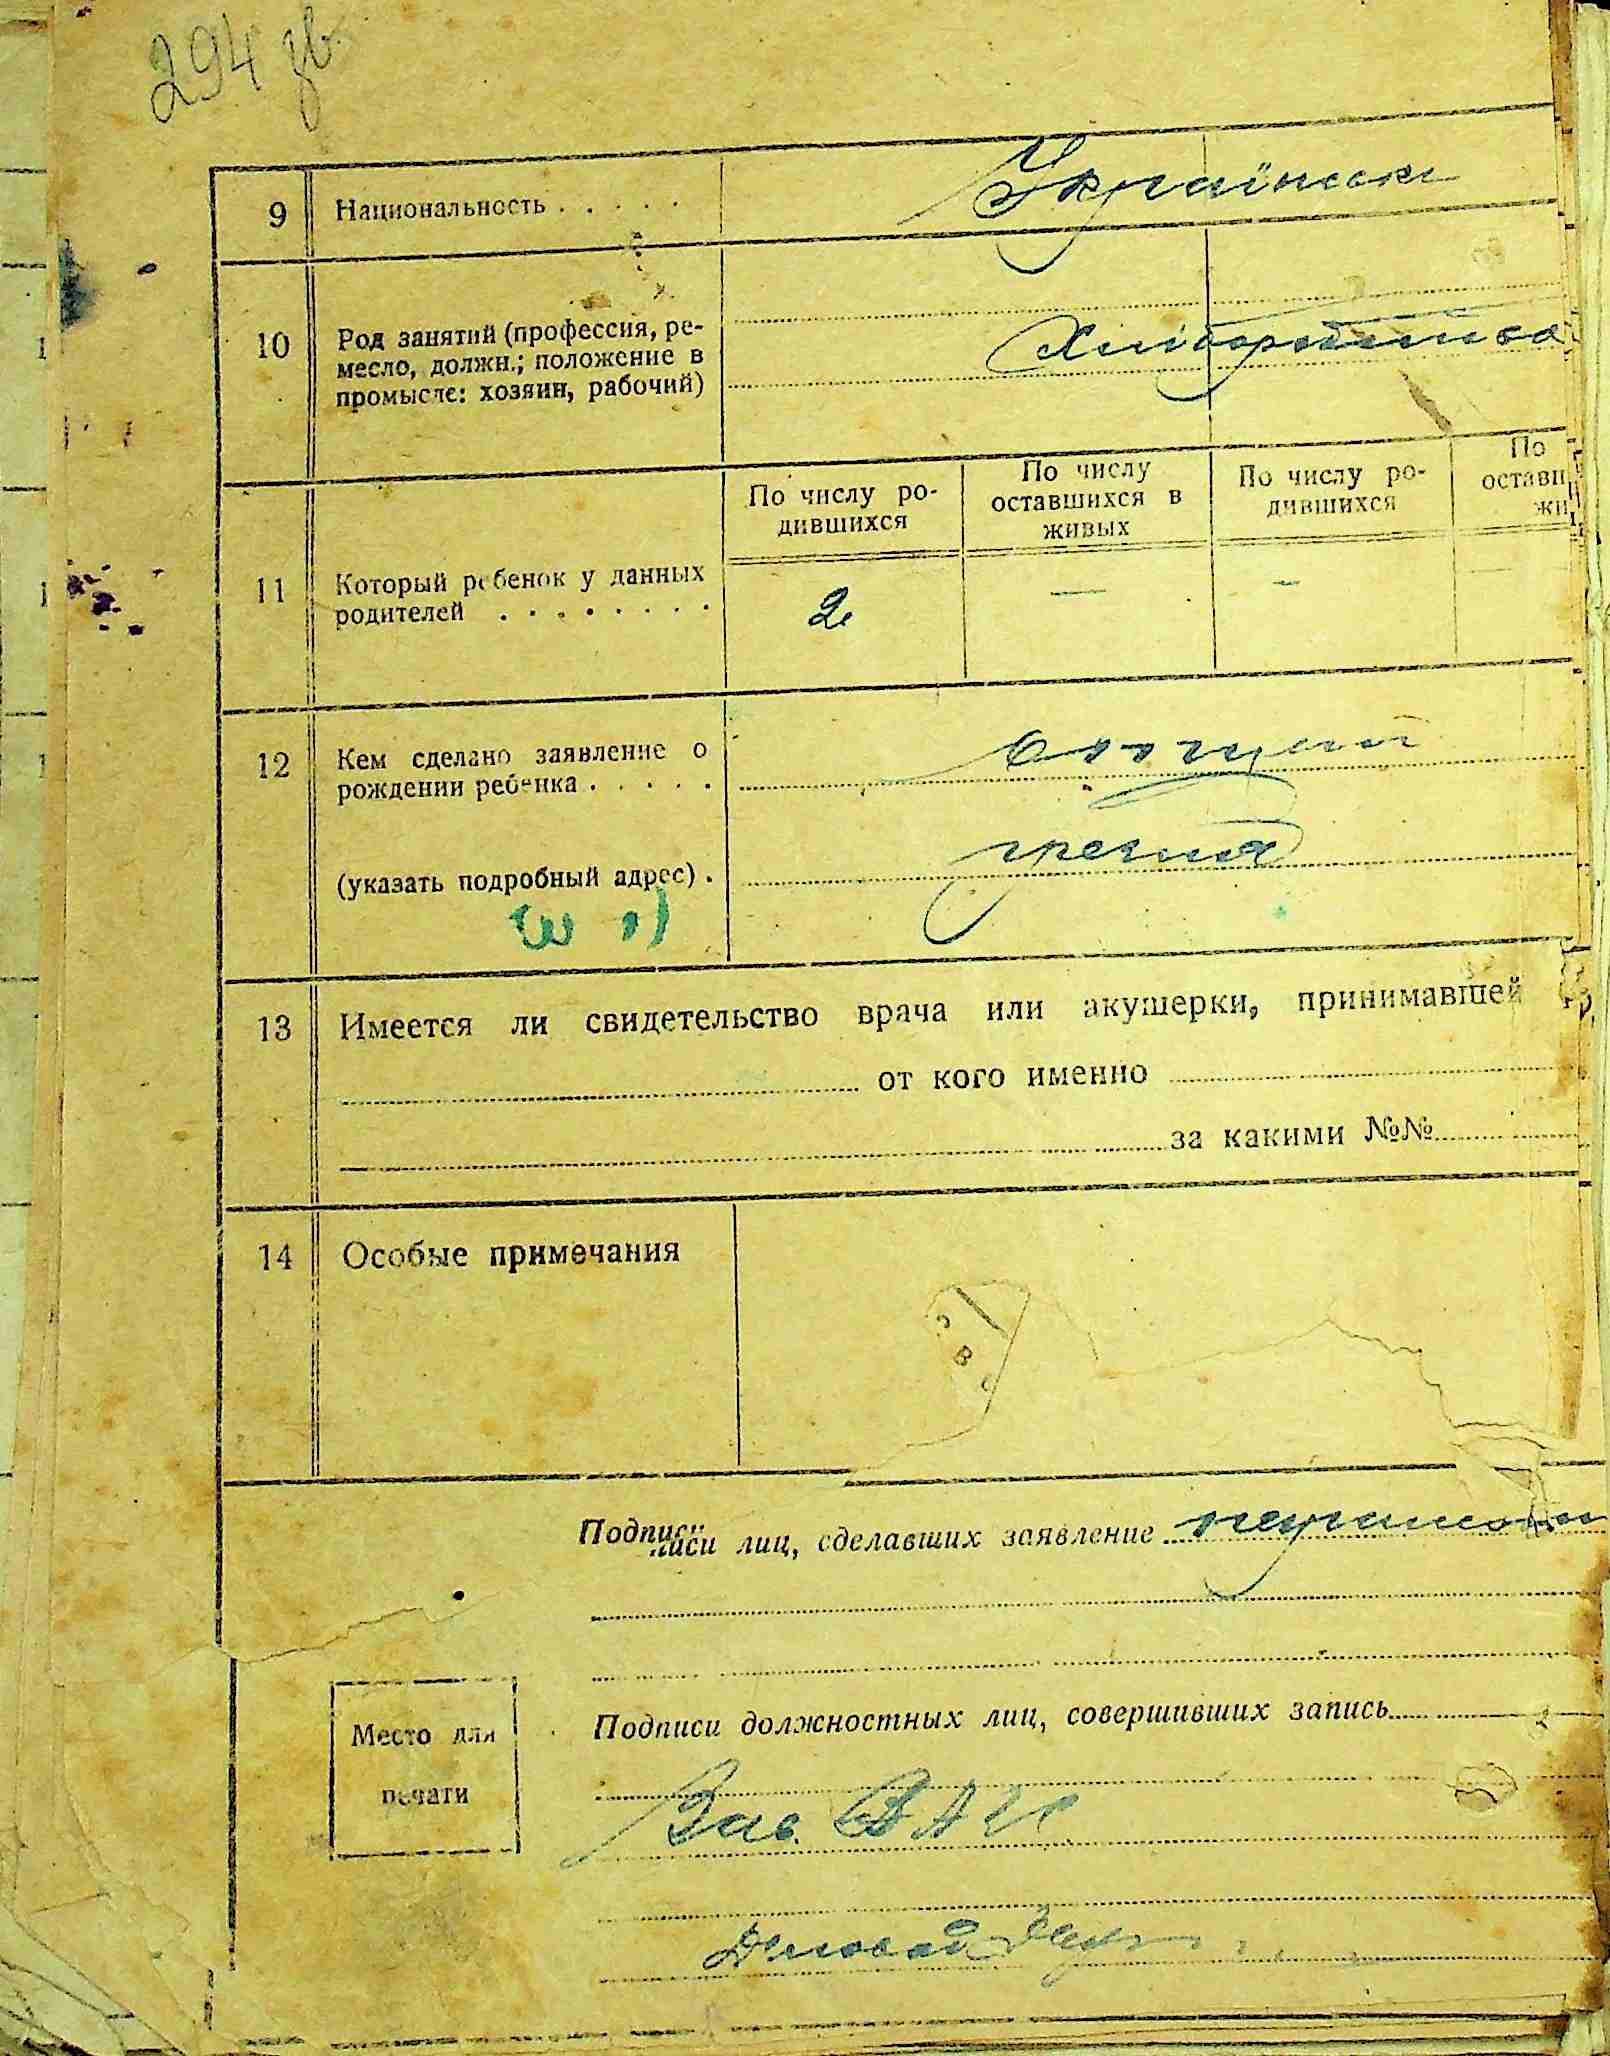 294 зв.
9 Национальность . . . . . Українська
10 Род занятий (профессия, ре-
месло, должн.; положение в
промысле: хозяин, рабочий)
Хліборобства
По числу ро-
дившихся
По числу
оставшихся в
живых
По числу ро-
дившихся
По
остави
жи
11 Который ребенок у данных
родителей . . . . . . . .
2 — — —
12 Кем сделано заявление о
рождении ребенка . . . . .
(указать подробный адрес) .
13 Имеется ли свидетельство врача или акушерки, принимавшей
от кого именно
за какими №№
14 Особые примечания
Подписи лиц, сделавших заявление
Место для
печати
Подписи должностных лиц, совершивших запись
Зав.